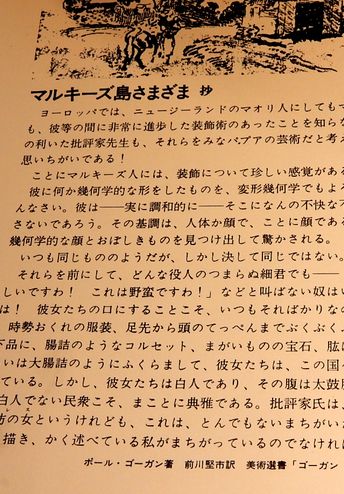 マルキーズ島さまざま 抄
ヨーロッパでは、ニュージーランドのマオリ人にしてもマ
も、彼等の間に非常に進歩した装飾術のあったことを知らな
の利いた批評家先生も、それらをみなパプアの芸術だと考え
思いちがいである！
ことにマルキーズ人には、装飾について珍しい感覚がある
彼に何か幾何学的な形をしたものを、変形幾何学でもよ
んなさい。彼は――実に調和的に――そこになんの不快な不
さないであろう。その基調は、人体か顔で、ことに顔である
幾何学的な顔とおぼしきものを見つけ出して驚かされる。
いつも同じもののようだが、しかし決して同じではない。
それらを前にして、どんな役人のつまらぬ細君でも――
しいですわ！ これは野蛮ですわ！」などと叫ばない奴はい
は！ 彼女たちの口にすることこそ、いつもそればかりなの
時勢おくれの服装、足先から頭のてっぺんまでぶくぶくふ
下品に、腸詰のようなコルセット、まがいものの宝石、肱に
いは大腸詰のようにふくらまして、彼女たちは、この国へ
ている。しかし、彼女たちは白人であり、その腹は太鼓腹
白人でない民衆こそ、まことに典雅である。批評家氏は、
の女というけれども、これは、とんでもないまちがいだ
描き、かく述べている私がまちがっているのでなければ
ポール・ゴーガン著 前川堅市訳 美術選書「ゴーガン